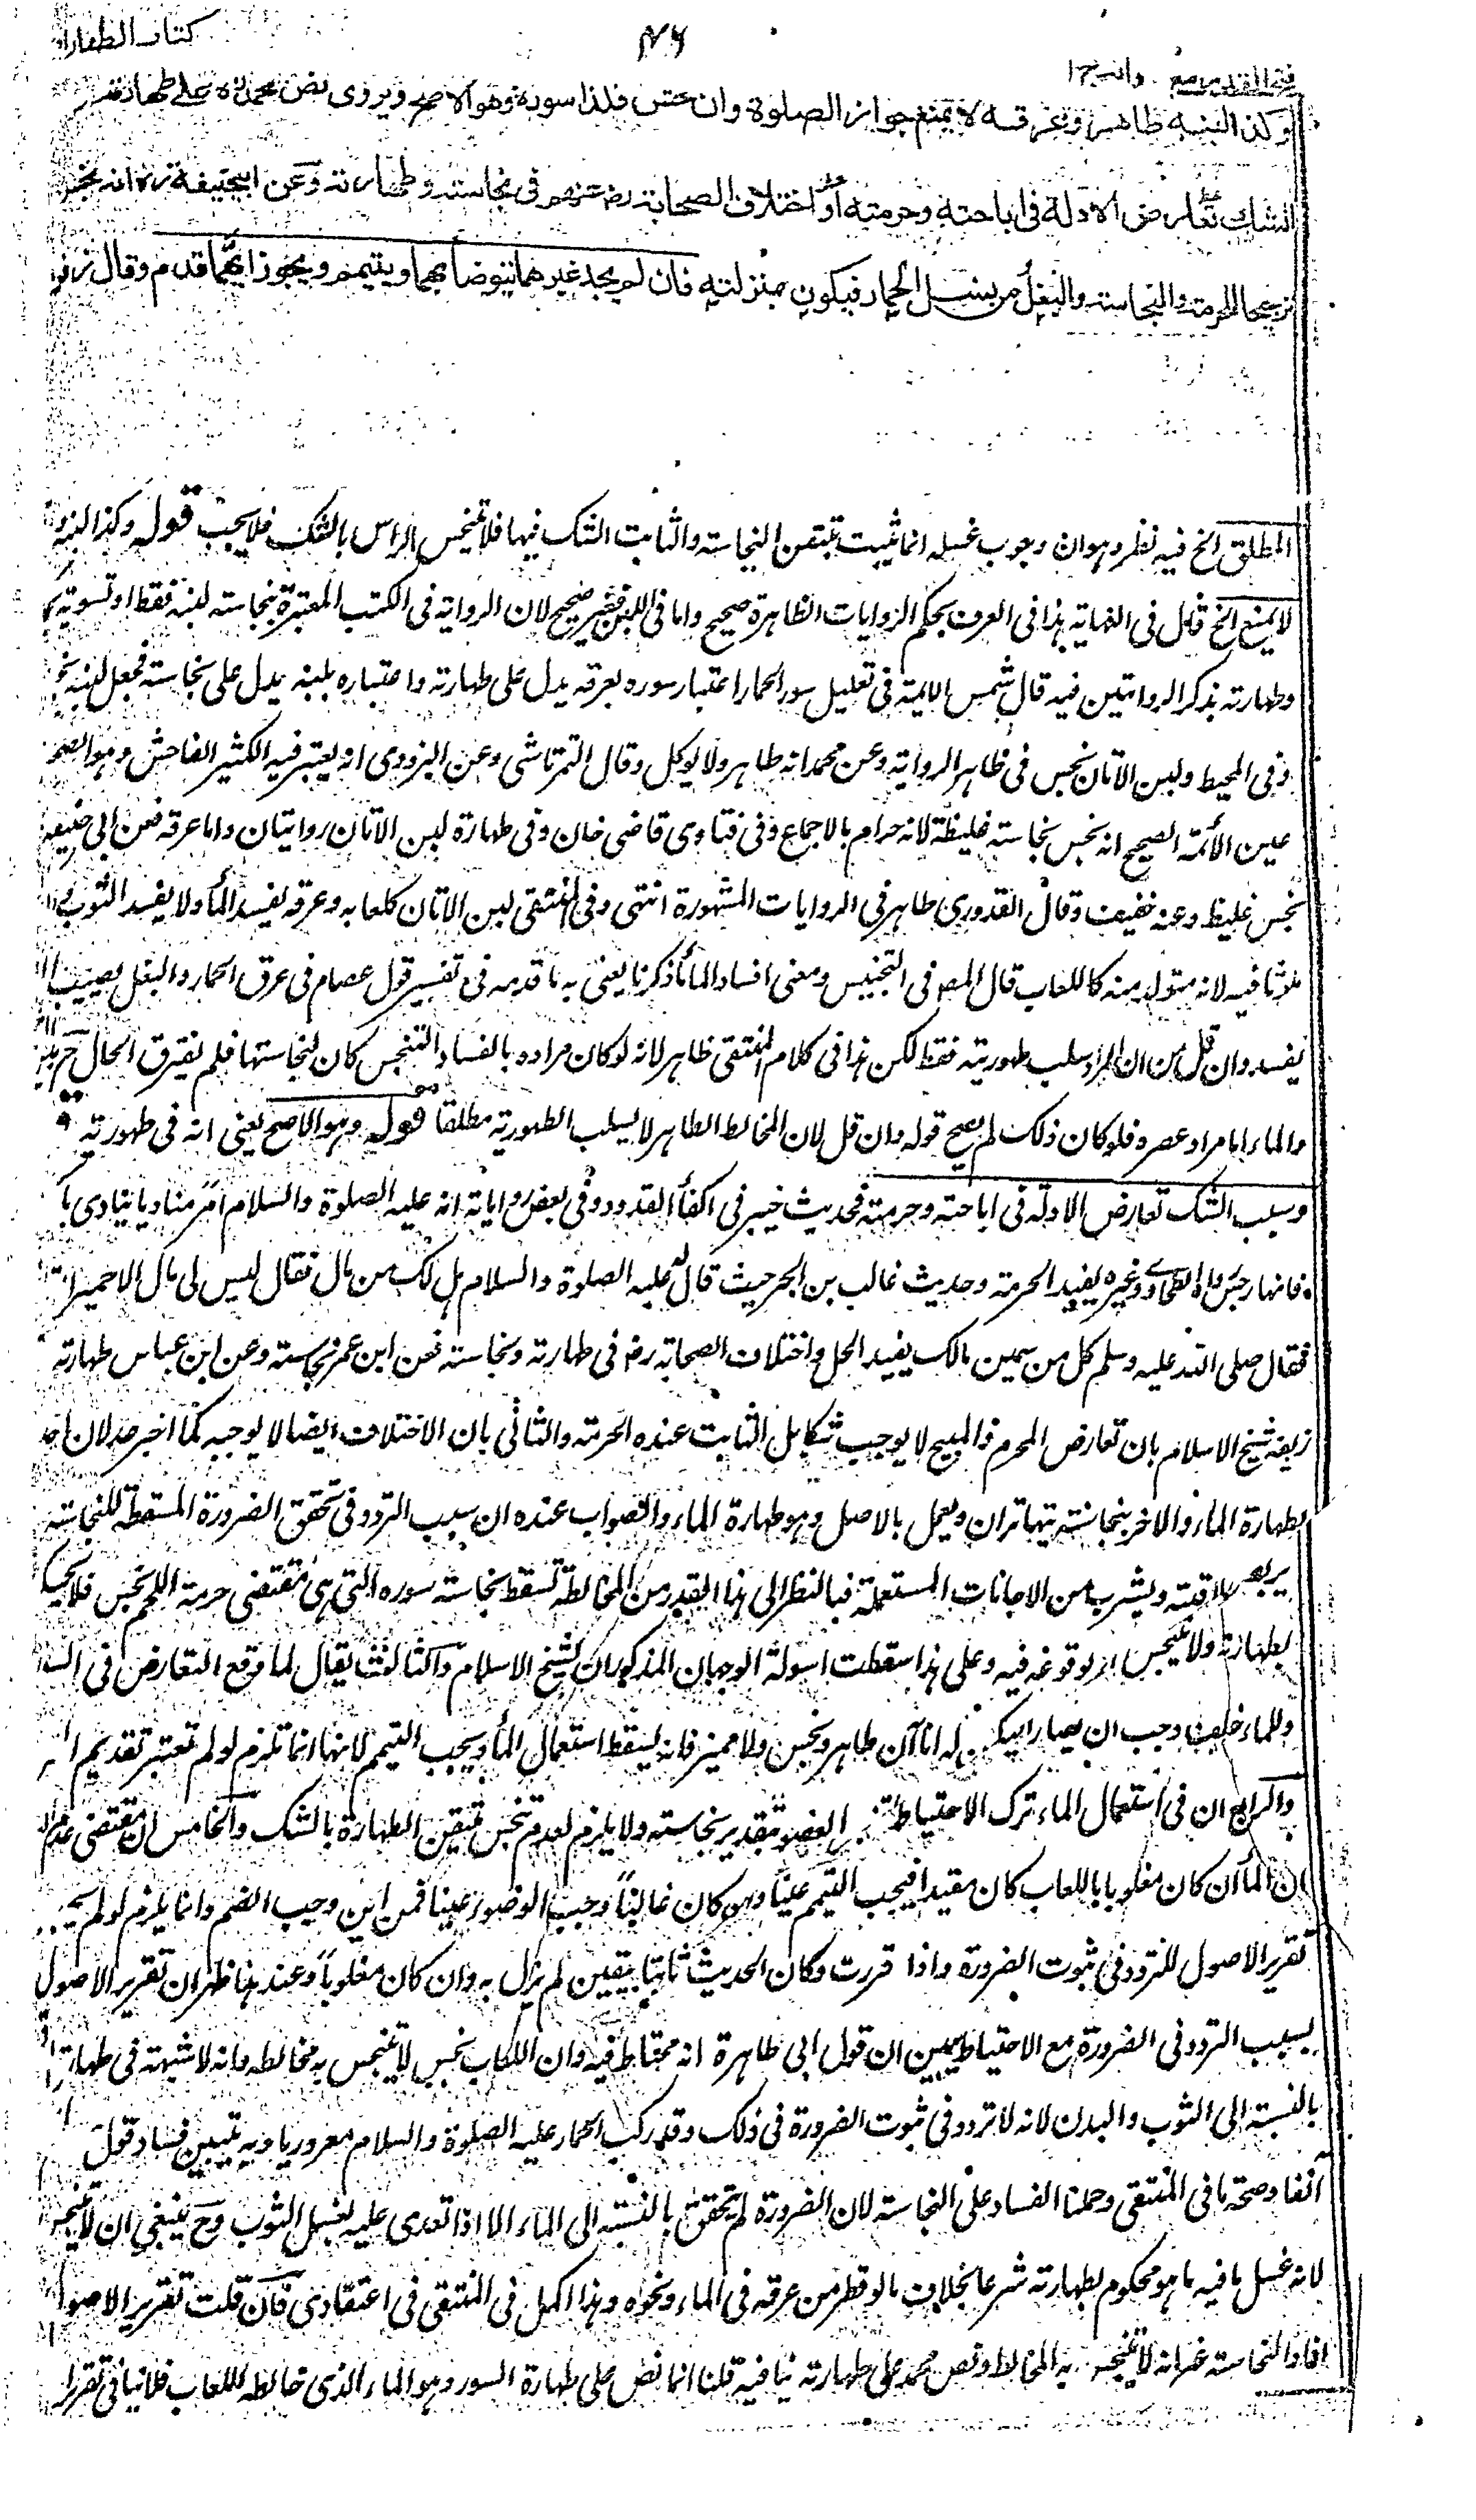 كتاب الطهارات
٧٤
فتح القدير مع
وكذا لبنه طاهر وعرقه لا يمنع جواز الصلوة وان فحش فكذا سوره وهو الاصح ويروى نص محمد ره على طهارته
الشك تعارض الادلة في اباحته وحرمته او اختلاف الصحابة رض عنهم في نجاسته وطهارته وعن ابيحنيفة ره انه نجس
ترجيحا للحرمة والنجاسة والبغل من نسل الحمار فيكون بمنزلته فان لم يجد غيرهما يتوضأ بهما ويتيمم ويجوز ايهما قدم وقال زفر
المطلق الخ فيه نظر وهو ان وجوب غسله انما يثبت بتيقن النجاسة والثابت الشك فيها فلا يتنجس الراس بالشك فلا يجب قوله وكذا لبنه
لا يمنع الخ قال في النهاية هذا في العرق بحكم الروايات الظاهرة صحيح واما في اللبن فغير صحيح لان الرواية في الكتب المعتبرة بنجاسة لبنه فقط او تسوية
وطهارته بذكر الروايتين فيه قال شمس الايمة في تعليل سور الحمار اعتبار سوره بعرقه يدل على طهارته واعتباره بلبنه يدل على نجاسته فجعل لبنه
وفي المحيط ولبن الاتان نجس في ظاهر الرواية وعن محمد انه طاهر ولا يوكل وقال التمرتاشي وعن البزدوي انه يعتبر فيه الكثير الفاحش وهو الصحيح
عين الأئمة الصحيح انه نجس نجاسة غليظة لانه حرام بالاجماع وفي فتاوى قاضي خان وفي طهارة لبن الاتان روايتان واما عرقه فعن ابي حنيفه
نجس غليظ وعنه خفيف وقال القدوري طاهر في الروايات المشهورة انتهى وفي المنتقى لبن الاتان كلعابه وعرقه يفسد الماء ولا يفسد الثوب
لانه متولد منه كاللعاب قال المص في التجنيس ومعنى افساد الماء ما ذكرنا يعني به ما قدمه في تفسير قول عصام في عرق الحمار والبغل يصيب
يفسد وان قل من ان المراد سلب طهوريته فقط لكن هذا في كلام المنتقى ظاهر لانه لو كان مراده بالفساد التنجس كان لنجاستها فلم يفترق الحال
والماء اما مراد عصر و فلو كان ذلك لم يصح قوله وان قل لان المخالط الطاهر لا يسلب الطهورية مطلقا قوله وهو الاصح يعني انه في طهوريته
وسبب الشك تعارض الادلة في اباحته وحرمته فحديث خيبر في اكفاء القدور وفي بعض رواياته انه عليه الصلوة والسلام امر مناديا ينادي
فانها رجس رواه الطحاوي وغيره يفيد الحرمة وحديث غالب بن ابجر حيث قال له عليه الصلوة والسلام هل لك من مال فقال ليس لي مال الا حميرات
فقال صلى الله عليه وسلم كل من سمين مالك يفيد الحل واختلاف الصحابة رض في طهارته ونجاسته فعن ابن عمر نجاسته وعن ابن عباس طهارته
زيفه شيخ الاسلام بان تعارض المحرم والمبيح لا يوجب شكا بل الثابت عنده الحرمة والثاني بان الاختلاف ايضا لا يوجبه كما اخبر عدلان احد
بطهارة الماء والاخر بنجاسته يتهاتران ويعمل بالاصل وهو طهارة الماء والصواب عنده ان سبب التردد في تحقق الضرورة المسقطة للنجاسة
ويشرب من الاجانات المستعملة فبالنظر الى هذا القدر من المخالطة تسقط نجاسة سوره التي هي مقتضى حرمة اللحم النجس فلا يحكم
بطهارته ولا يتنجس بوقوعه فيه وعلى هذا سقطت اسولة الوجهان المذكوران لشيخ الاسلام والثالث يقال لما وقع التعارض في
وللماء خلف وجب ان يصار اليه كمن له اناآن طاهر ونجس ولا مميز فانه يسقط استعمال الماء ويجب التيمم لانها انما تلزم لو لم تعتبر تقديم
والرابع ان في استعمال الماء ترك الاحتياط العضو بتقدير نجاسته ولا يلزم لعدم تنجس بتيقن الطهارة بالشك والخامس ان مقتضى عدم
ان الماء ان كان مغلوبا باللعاب كان مقيدا فيجب التيمم عينا وان كان غالبا وجب الوضوء عينا فمن اين وجب الضم وانما يلزم لو لم
تقرير الاصول للتردد في ثبوت الضرورة واذا قررت وكان الحدث ثابتا بيقين لم يزل به وان كان مغلوبا وعند هذا ظهر ان تقرير الاصول
بسبب التردد في الضرورة مع الاحتياط يبين ان قول ابي طاهرة انه محتاط فيه وان اللعاب نجس لا يتنجس به مخالطه وانه لا شبهة في طهارته
بالنسبة الى الثوب والبدن لانه لا تردد في ثبوت الضرورة في ذلك وقد ركب الحمار عليه الصلوة والسلام معروريا وبه يتبين فساد قول
آنفا وصحة ما في المنتقى وحملنا الفساد على النجاسة لان الضرورة لم يتحقق بالنسبة الى الماء اما اذا تعدى عليه لغسل الثوب وح ينبغي ان لا يتنجس
لانه غسل ما فيه ما هو محكوم بطهارته شرعا بخلاف ما لو قطر من عرقه في الماء ونحوه وهذا اكمل في المنتقى في اعتقادي فان قلت تقرير الاصول
افاد النجاسة غير انه لا يتنجس به المخالط ونص محمد على طهارته ينافيه قلنا انما نص على طهارة السور وهو الماء الذي خالطه اللعاب فلا ينافي تقرير